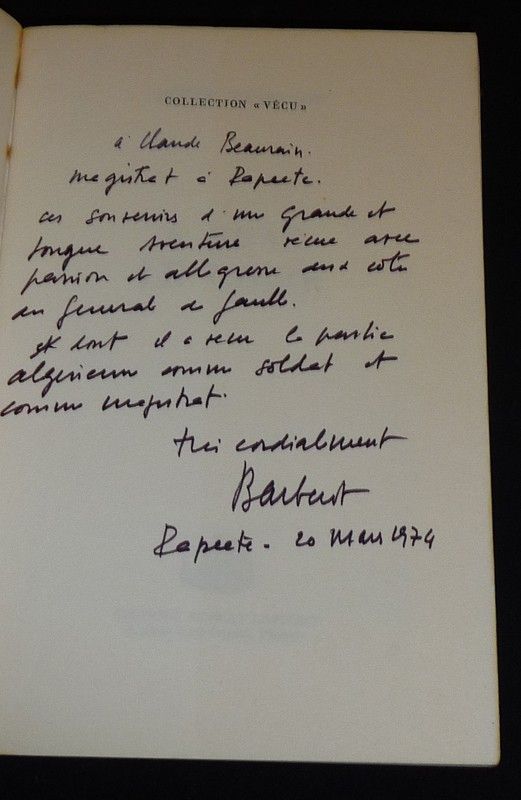 COLLECTION « VÉCU »
à Claude Beaurain.
magistrat à Papeete.
ces souvenirs d'une grande et
longue aventure vécue avec
passion et allegresse aux côtés
du General de Gaulle.
et dont il a vécu la partie
algérienne comme soldat et
comme magistrat.
très cordialement
Barberot
Papeete. 20 Mars 1974